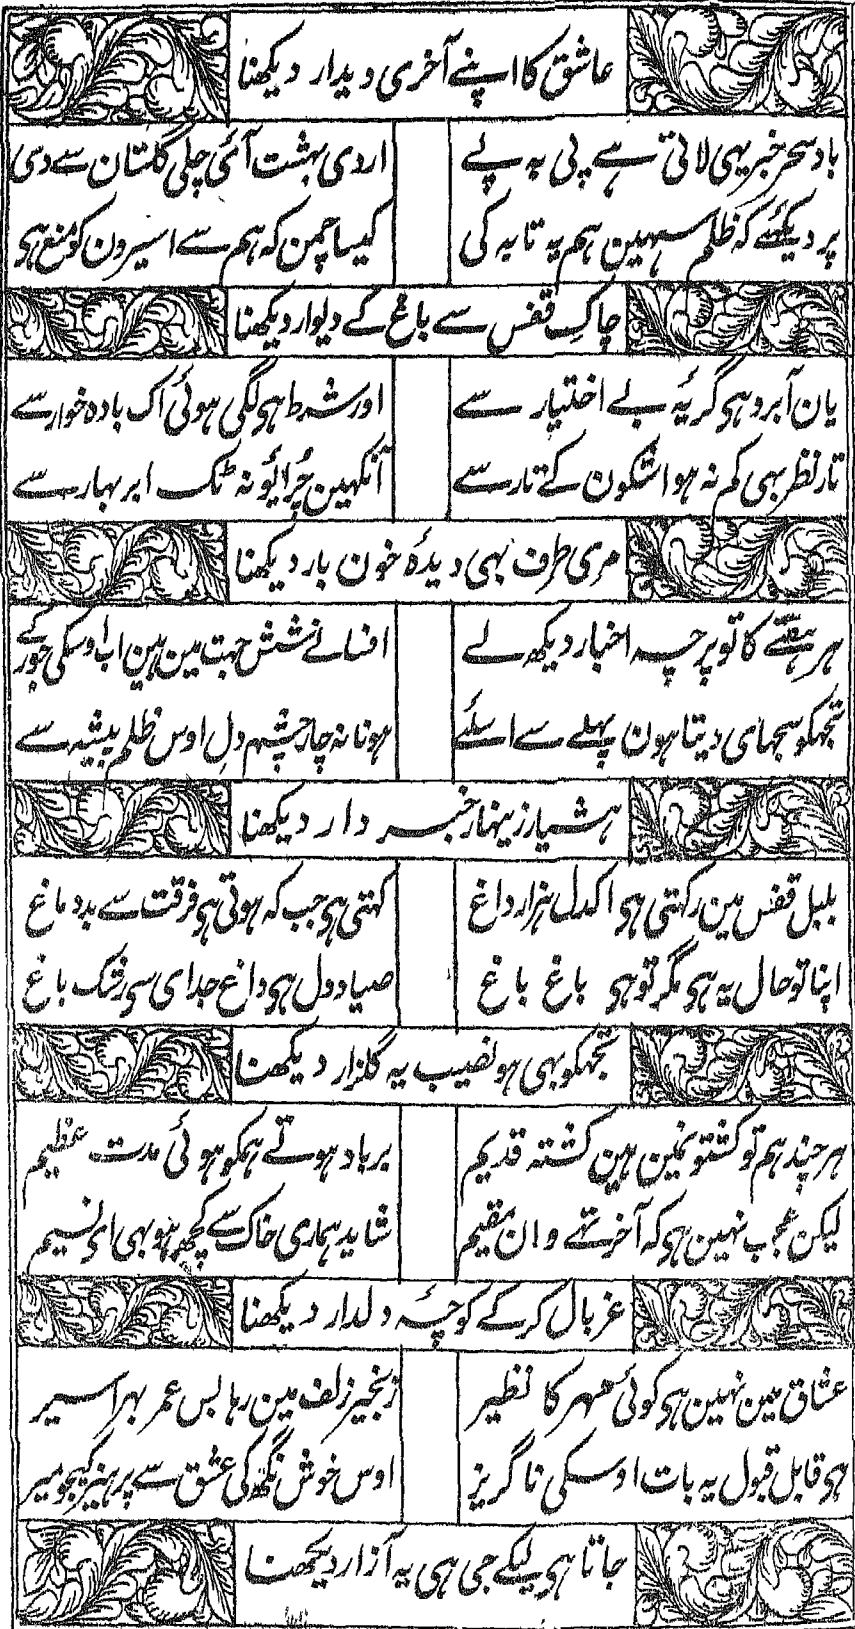 عاشق کا اپنے آخری دیدار دیکھنا
باد سحر خبر یہی لاتی ہے پی بہ پے
اردی بہشت آئی چلی گلستان سے دی
پر دیکھئے کہ ظلم سہین ہم یہ تا بہ کی
کیسا چمن کہ ہم سے اسیرون کو منع ہی
چاکِ قفس سے باغ کے دیوار دیکھنا
یان آبرو ہی گریۂ بے اختیار سے
اور شرط ہی لگی ہوئی اک بادہ خوار سے
تار نظر بہی کم نہ ہو اشکون کے تار سے
آنکہین چُرائیو نہ ٹک ابر بہار سے
مری طرف بہی دیدۂ خون بار دیکہنا
ہر ہفتے کا تو پرچہ اخبار دیکھ لے
افسانے شش جہت مین ہین اب اوسکی جور کے
تجہکو سجہای دیتا ہون پہلے سے اسلئے
ہونا نہ چار چشم دلِ اوس ظلم پیشہ سے
ہشیار زینہار خبر دار دیکہنا
بلبل قفس مین رکہتی ہی اکدل ہزار داغ
کہتی ہی جب کہ ہوتی ہی فرقت سے بد دماغ
اپنا تو حال یہ ہی مگر تو ہی باغ باغ
صیاد دل ہی داغ جدای سی رشک باغ
تجہکو بہی ہو نصیب یہ گلزار دیکہنا
ہر چند ہم تو کشتونمین ہین کشتہ قدیم
برباد ہوتے ہمکو ہوئی مدت عظیم
لیکن عجب نہین ہی کہ آخر تہے وان مقیم
شاید ہماری خاک سے کچھ ہو بہی ای نسیم
غربال کر کے کوچۂ دلدار دیکہنا
عشاق مین نہین ہی کوئی مہر کا نظیر
زنجیر زلف مین رہا بس عمر بہر اسیر
ہی قابل قبول یہ بات اوسکی ناگریز
اوس خوش نگھ کی عشق سے پرہیز کیجو میر
جاتا ہی لیکے جی ہی یہ آزار دیکھنا